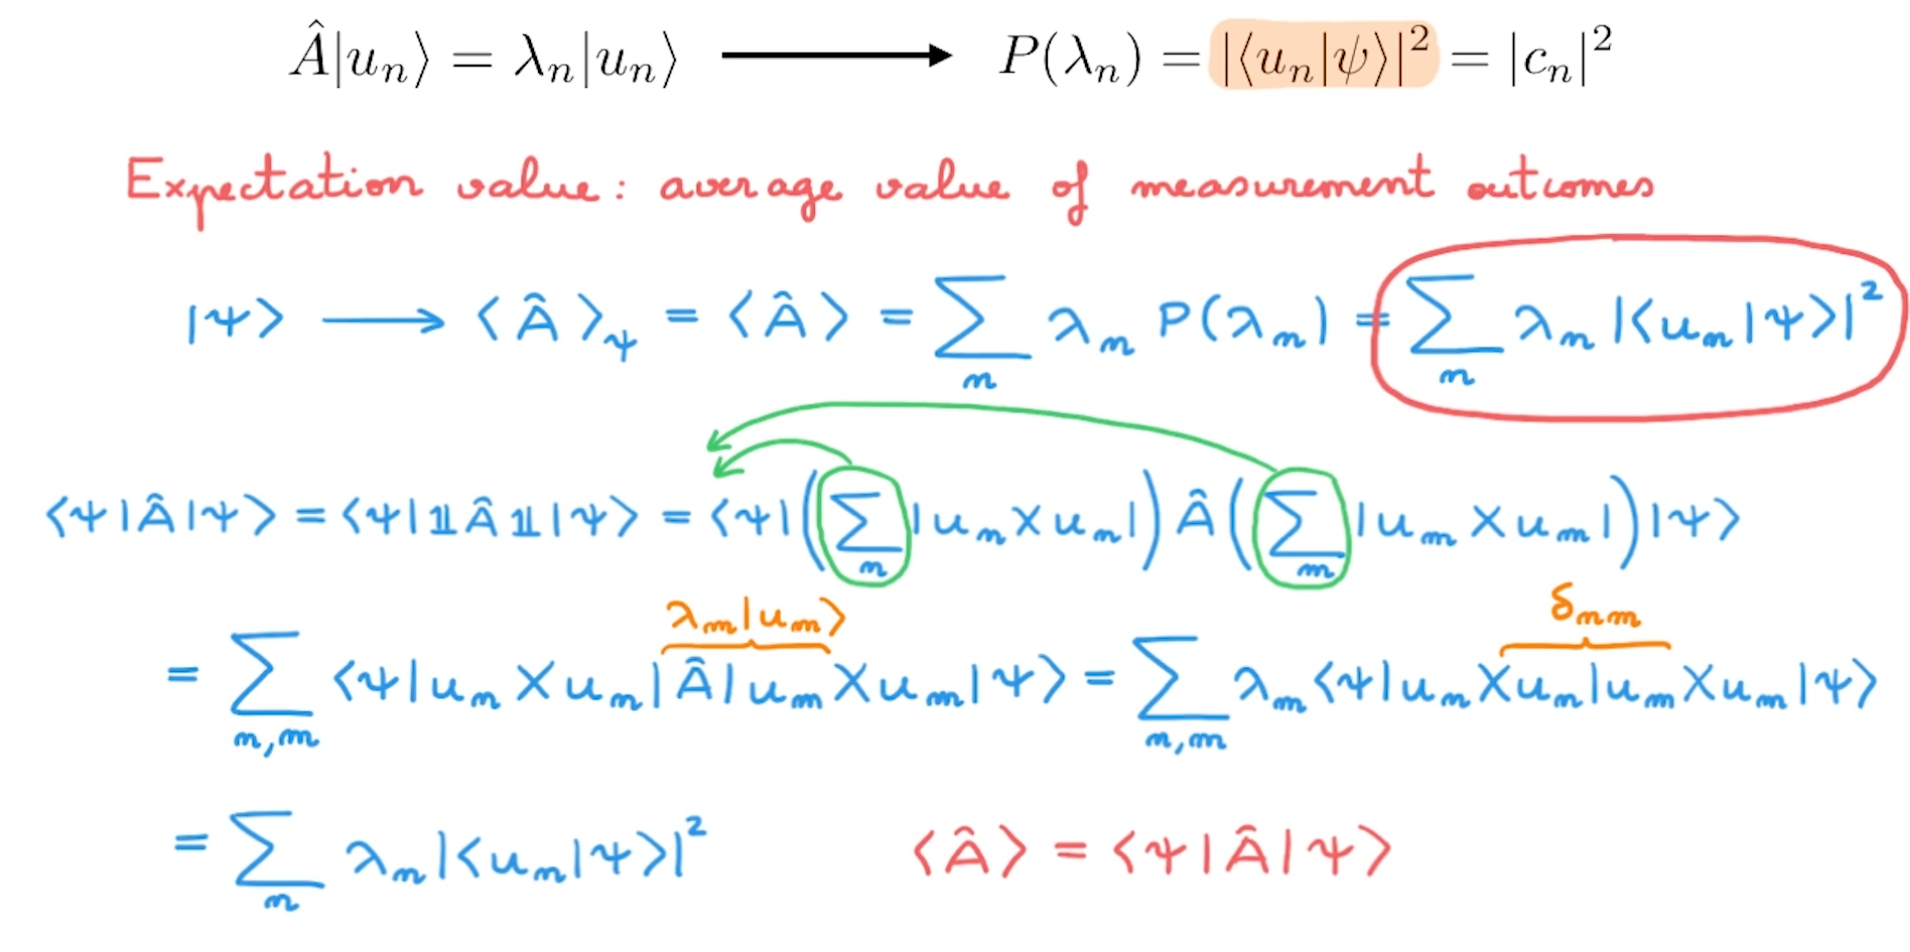 Â|uₙ⟩ = λₙ|uₙ⟩ ⟶ P(λₙ) = |⟨uₙ|ψ⟩|² = |cₙ|²
Expectation value: average value of measurement outcomes
|ψ⟩ ⟶ ⟨Â⟩_ψ = ⟨Â⟩ = ∑ₙ λₙ P(λₙ) = ∑ₙ λₙ |⟨uₙ|ψ⟩|²
⟨ψ|Â|ψ⟩ = ⟨ψ|𝟙Â𝟙|ψ⟩ = ⟨ψ|(∑ₙ |uₙ⟩⟨uₙ|) Â (∑ₘ |uₘ⟩⟨uₘ|)|ψ⟩
λₘ|uₘ⟩ δₙₘ
= ∑ₙ,ₘ ⟨ψ|uₙ⟩⟨uₙ|Â|uₘ⟩⟨uₘ|ψ⟩ = ∑ₙ,ₘ λₘ⟨ψ|uₙ⟩⟨uₙ|uₘ⟩⟨uₘ|ψ⟩
= ∑ₙ λₙ|⟨uₙ|ψ⟩|² ⟨Â⟩ = ⟨ψ|Â|ψ⟩